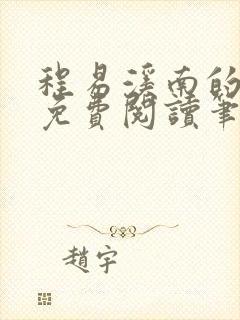 程易溪南的
免費閱讀筆
趙宇